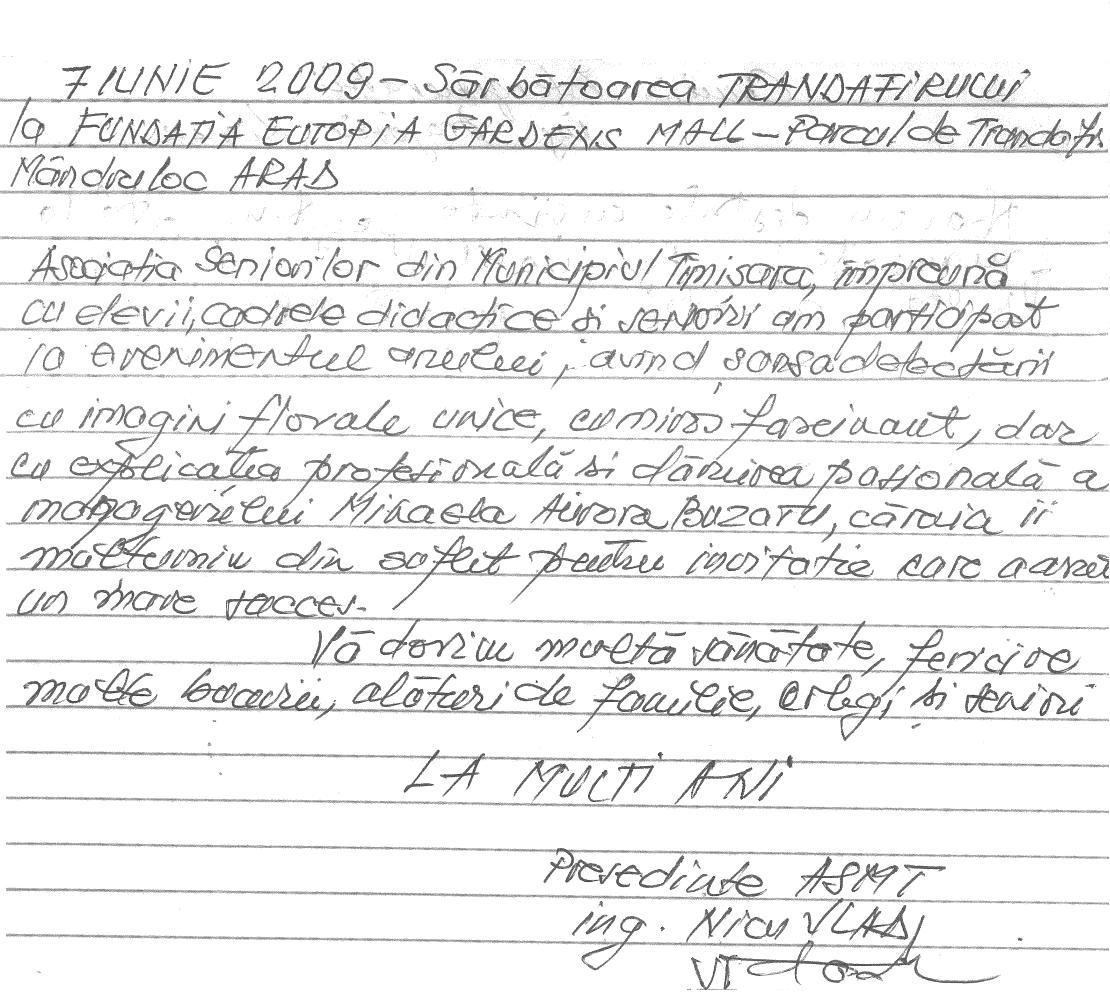 7 IUNIE 2009 - Sărbătoarea TRANDAFIRULUI
la FUNDATIA EUTOPIA GARDENS MALL - Parcul de Trandafiri
Mândruloc ARAD
Asociatia Seniorilor din Municipiul Timisoara, împreună
cu elevii, cadrele didactice si seniori am participat
la evenimentul anului, avind sansa delectării
cu imagini florale unice, cu miros fascinant, dar
cu explicatia profesională si dăruirea pasională a
managerului Mihaela Aurora Buzatu, căreia ii
multumim din suflet pentru invitatie care a avut
un mare succes.
Vă dorim multă sănătate, fericire
multe bucurii, alături de familie, colegi si seniori
LA MULTI ANI
Presedinte ASMT
ing. Nicu VLAD